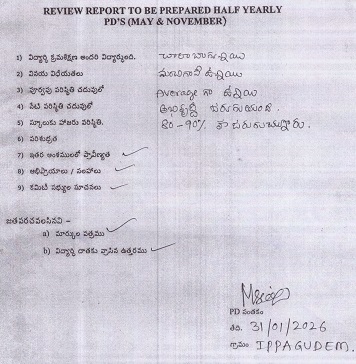 REVIEW REPORT TO BE PREPARED HALF YEARLY
PD'S (MAY & NOVEMBER)
1) విద్యార్థి క్రమశిక్షణ అందరి విద్యార్థుంది. చాలా బాగున్నాయి
2) వినయ విధేయతలు మంచిగానే ఉన్నాయి
3) పూర్వపు పరిస్థితి చదువులో Average గా ఉన్నాయి
4) పేటి పరిస్థితి చదువులో అభివృద్ధి జరుగుయింది.
5) స్కూలుకు హాజరు పరిస్థితి. 80-90% హాజరుగుచున్నారు.
6) పరిశుభ్రత
7) ఇతర అంశములతో ప్రావీణ్యత
8) అభిప్రాయాలు / సలహాలు
9) కమిటీ సభ్యుల సూచనలు
జతపరచవలసినవి :-
a) మార్కుల పత్రము
b) విద్యార్థి దాతకు వ్రాసిన ఉత్తరము
PD సంతకం
తేది. 31/01/2026
గ్రామం: IPPAGUDEM.